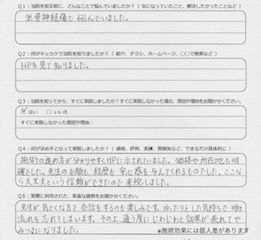 Q1：当院を知る前に、どんなことで悩んでいましたか？（気になっていたこと、解決したかったことなど）
坐骨神経痛で悩んでいました。
Q2：何がキッカケで当院を知りましたか？（紹介、チラシ、ホームページ、○○で検索など）
HPを見て知りました。
Q3：当院を知ってから、すぐに来院しましたか？すぐに来院しなかった場合、原因や理由をお聞かせください。
はい　いいえ
すぐに来院しなかった原因や理由：
Q4：何が決め手となって来院しましたか？
施術の進め方が分かりやすくHPに示されていました。価格や所在地も明
確でした。先生のお顔も経歴も安心感を与えてくれるものでした。ここなら
大丈夫という信頼ができたので来院しました。
先生が気さくな方で会話をするのも楽しみです。ゆったりとした気持ちで時の
流れを忘れてしまいます。その上通う度にじわじわと効果が表れてや
みつきになりそうです。
※施術効果には個人差があります